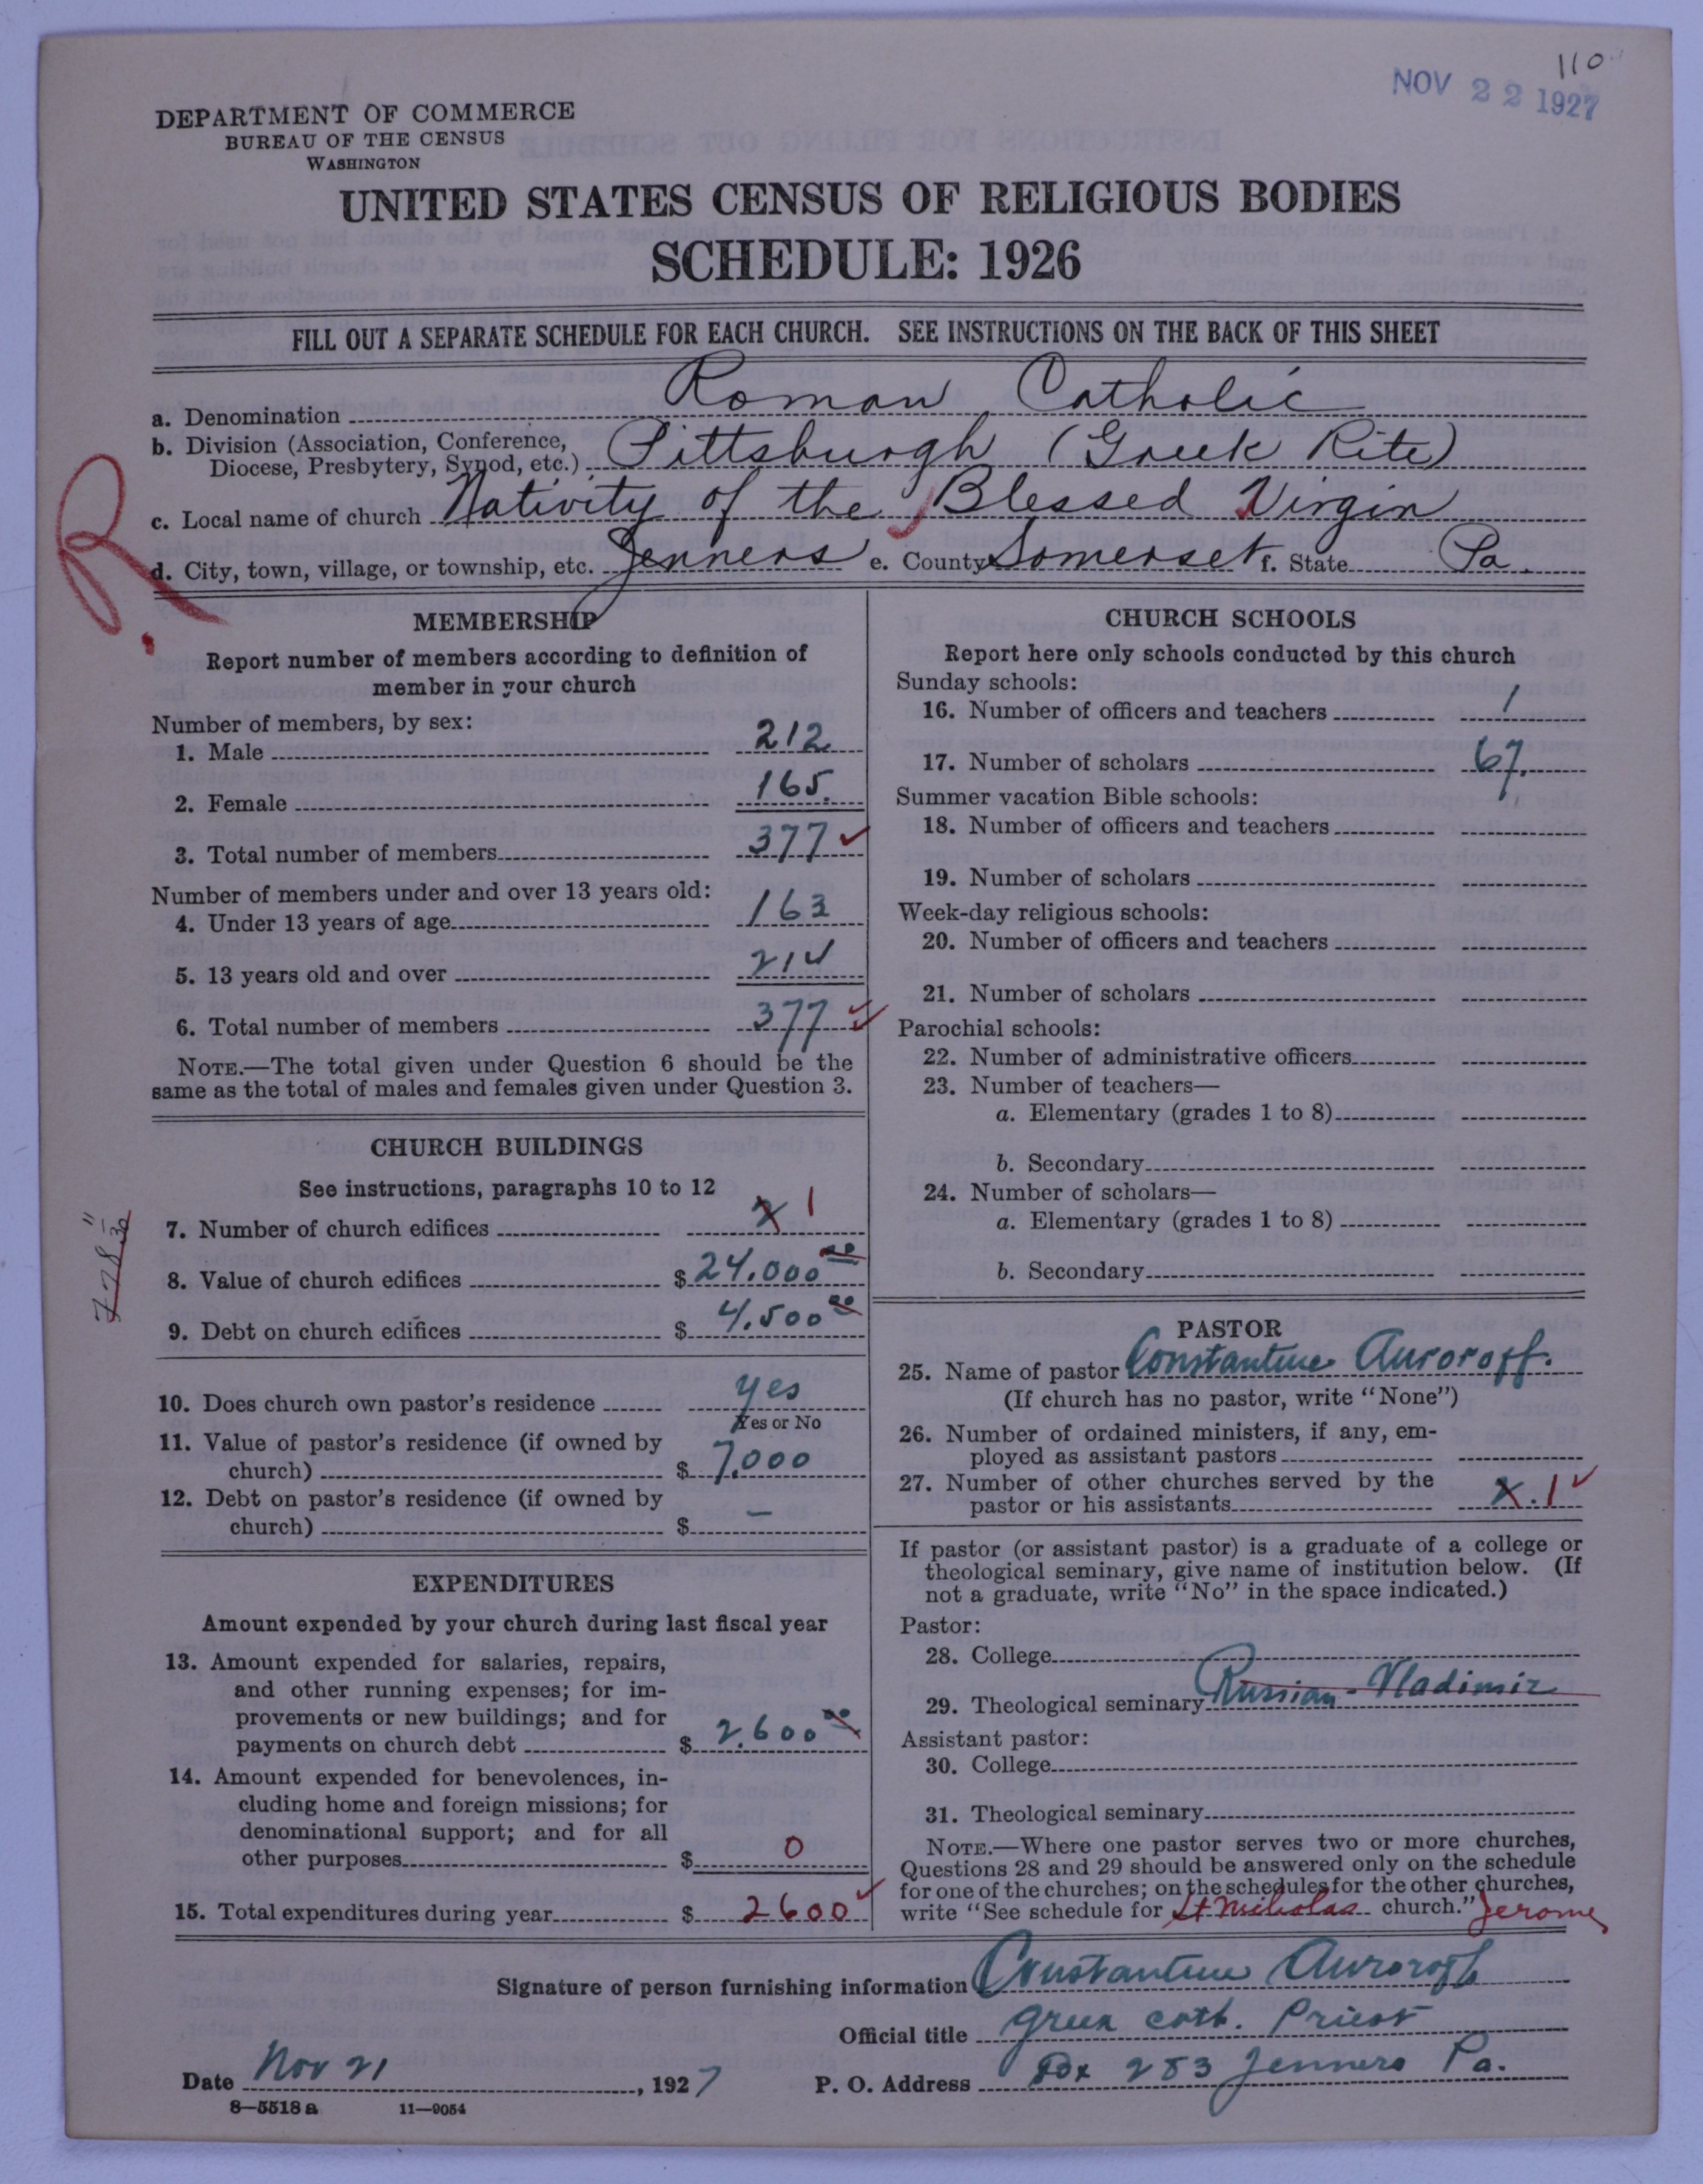 110
NOV 22 1927
DEPARTMENT OF COMMERCE
BUREAU OF THE CENSUS
WASHINGTON
UNITED STATES CENSUS OF RELIGIOUS BODIES
SCHEDULE: 1926
FILL OUT A SEPARATE SCHEDULE FOR EACH CHURCH. SEE INSTRUCTIONS ON THE BACK OF THIS SHEET
a. Denomination Roman Catholic
b. Division (Association, Conference,
Diocese, Presbytery, Synod, etc.) Pittsburgh (Greek Rite)
c. Local name of church Nativity of the Blessed Virgin
d. City, town, village, or township, etc. Jenners e. County Somerset f. State Pa.
R.
MEMBERSHIP
Report number of members according to definition of
member in your church
Number of members, by sex:
1. Male 212
2. Female 165.
3. Total number of members 377 ✓
Number of members under and over 13 years old:
4. Under 13 years of age 163
5. 13 years old and over 214
6. Total number of members 377 ✓
NOTE.—The total given under Question 6 should be the
same as the total of males and females given under Question 3.
CHURCH BUILDINGS
See instructions, paragraphs 10 to 12
7. Number of church edifices X 1
8. Value of church edifices $ 24.000 00
9. Debt on church edifices $ 4.500 00
10. Does church own pastor's residence yes
Yes or No
11. Value of pastor's residence (if owned by
church) $ 7.000
12. Debt on pastor's residence (if owned by
church) $ —
EXPENDITURES
Amount expended by your church during last fiscal year
13. Amount expended for salaries, repairs,
and other running expenses; for im-
provements or new buildings; and for
payments on church debt $ 2.600 00
14. Amount expended for benevolences, in-
cluding home and foreign missions; for
denominational support; and for all
other purposes $ 0
15. Total expenditures during year $ 2600 ✓
CHURCH SCHOOLS
Report here only schools conducted by this church
Sunday schools:
16. Number of officers and teachers 1
17. Number of scholars 67.
Summer vacation Bible schools:
18. Number of officers and teachers
19. Number of scholars
Week-day religious schools:
20. Number of officers and teachers
21. Number of scholars
Parochial schools:
22. Number of administrative officers
23. Number of teachers—
a. Elementary (grades 1 to 8)
b. Secondary
24. Number of scholars—
a. Elementary (grades 1 to 8)
b. Secondary
PASTOR
25. Name of pastor Constantine Auroroff.
(If church has no pastor, write "None")
26. Number of ordained ministers, if any, em-
ployed as assistant pastors
27. Number of other churches served by the
pastor or his assistants X. 1 ✓
If pastor (or assistant pastor) is a graduate of a college or
theological seminary, give name of institution below. (If
not a graduate, write "No" in the space indicated.)
Pastor:
28. College
29. Theological seminary Russian - Vladimir
Assistant pastor:
30. College
31. Theological seminary
NOTE.—Where one pastor serves two or more churches,
Questions 28 and 29 should be answered only on the schedule
for one of the churches; on the schedules for the other churches,
write "See schedule for St Nicholas church." Jerome
Signature of person furnishing information Constantine Auroroff
Official title Greek cath. Priest
Date Nov 21, 1927 P. O. Address Box 283 Jenners Pa.
8—5518 a 11—9054